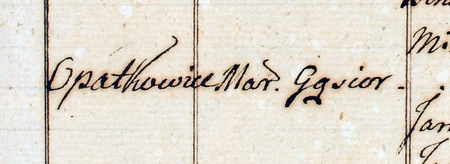 Opatkowice Mar. Gąsior.
Mi
Jan